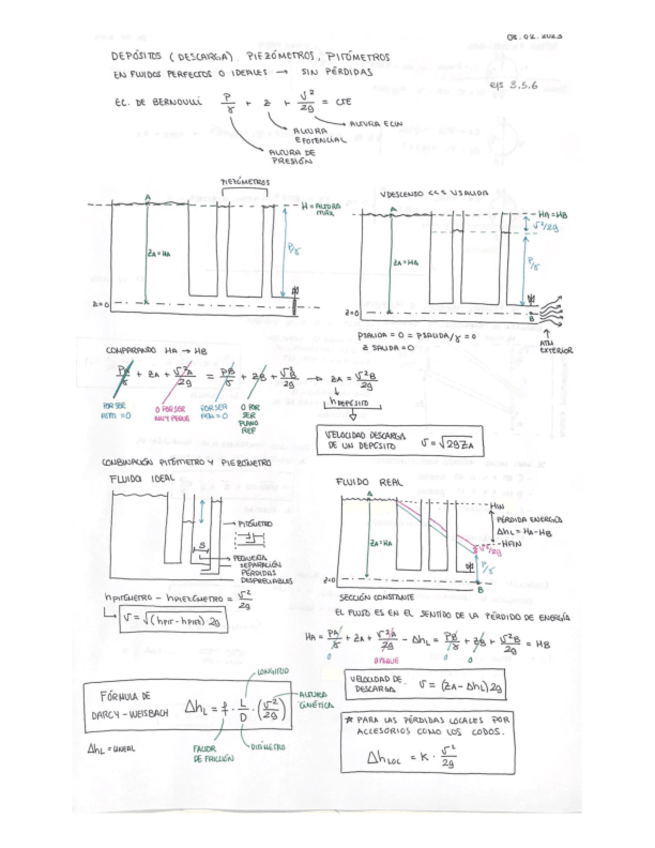 DEPÓSITOS (DESCARGA). PIEZÓMETROS, PITÓMETROS
EN FLUIDOS PERFECTOS O IDEALES → SIN PÉRDIDAS
ejs 3,5,6
EC. DE BERNOULLI P/γ + z + v²/2g = CTE
ALTURA E CIN
ALTURA E POTENCIAL
ALTURA DE PRESIÓN
PIEZÓMETROS
A
H = ALTURA MÁX
ZA = HA
P/γ
Z=0
VDESCENSO <<< VSALIDA
A
HA = HB
v²/2g
ZA = HA
P/γ
Z=0
B
PSALIDA = 0 = PSALIDA/γ = 0
Z SALIDA = 0
ATM EXTERIOR
COMPARANDO HA → HB
PA/γ + ZA + v²A/2g = PB/γ + ZB + v²B/2g → ZA = v²B/2g
POR SER ATM = 0
0 POR SER MUY PEQUE
POR SER ATM = 0
0 POR SER PLANO REF
h DEPÓSITO
VELOCIDAD DESCARGA DE UN DEPÓSITO v = √2gZA
COMBINACIÓN PITÓMETRO Y PIEZÓMETRO
FLUIDO IDEAL
PITÓMETRO
S
PEQUEÑA SEPARACIÓN PÉRDIDAS DESPRECIABLES
hPITÓMETRO - hPIEZÓMETRO = v²/2g
v = √(hPIT - hPIEZ) 2g
FLUIDO REAL
A
HIN
PÉRDIDA ENERGÍA
ΔhL = HA - HB
HFIN
v²/2g
ZA = HA
P/γ
Z=0
B
SECCIÓN CONSTANTE
EL FLUJO ES EN EL SENTIDO DE LA PÉRDIDA DE ENERGÍA
HA = PA/γ + ZA + v²A/2g - ΔhL = PB/γ + ZB + v²B/2g = HB
0
0 PEQUE
0
0
VELOCIDAD DE DESCARGA v = (ZA - ΔhL) 2g
LONGITUD
FÓRMULA DE DARCY - WEISBACH ΔhL = f · L/D · (v²/2g)
ALTURA CINÉTICA
ΔhL = LINEAL
FACTOR DE FRICCIÓN
DIÁMETRO
★ PARA LAS PÉRDIDAS LOCALES POR ACCESORIOS COMO LOS CODOS.
ΔhLOC = K · v²/2g